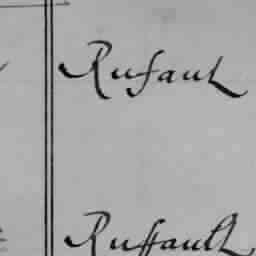 Rufaut
Ruffault